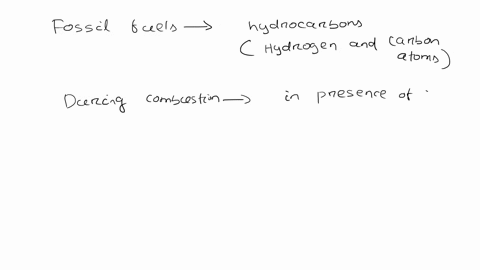 Fossil fuels → hydrocarbons
(Hydrogen and carbon atoms)
During combustion → in presence of